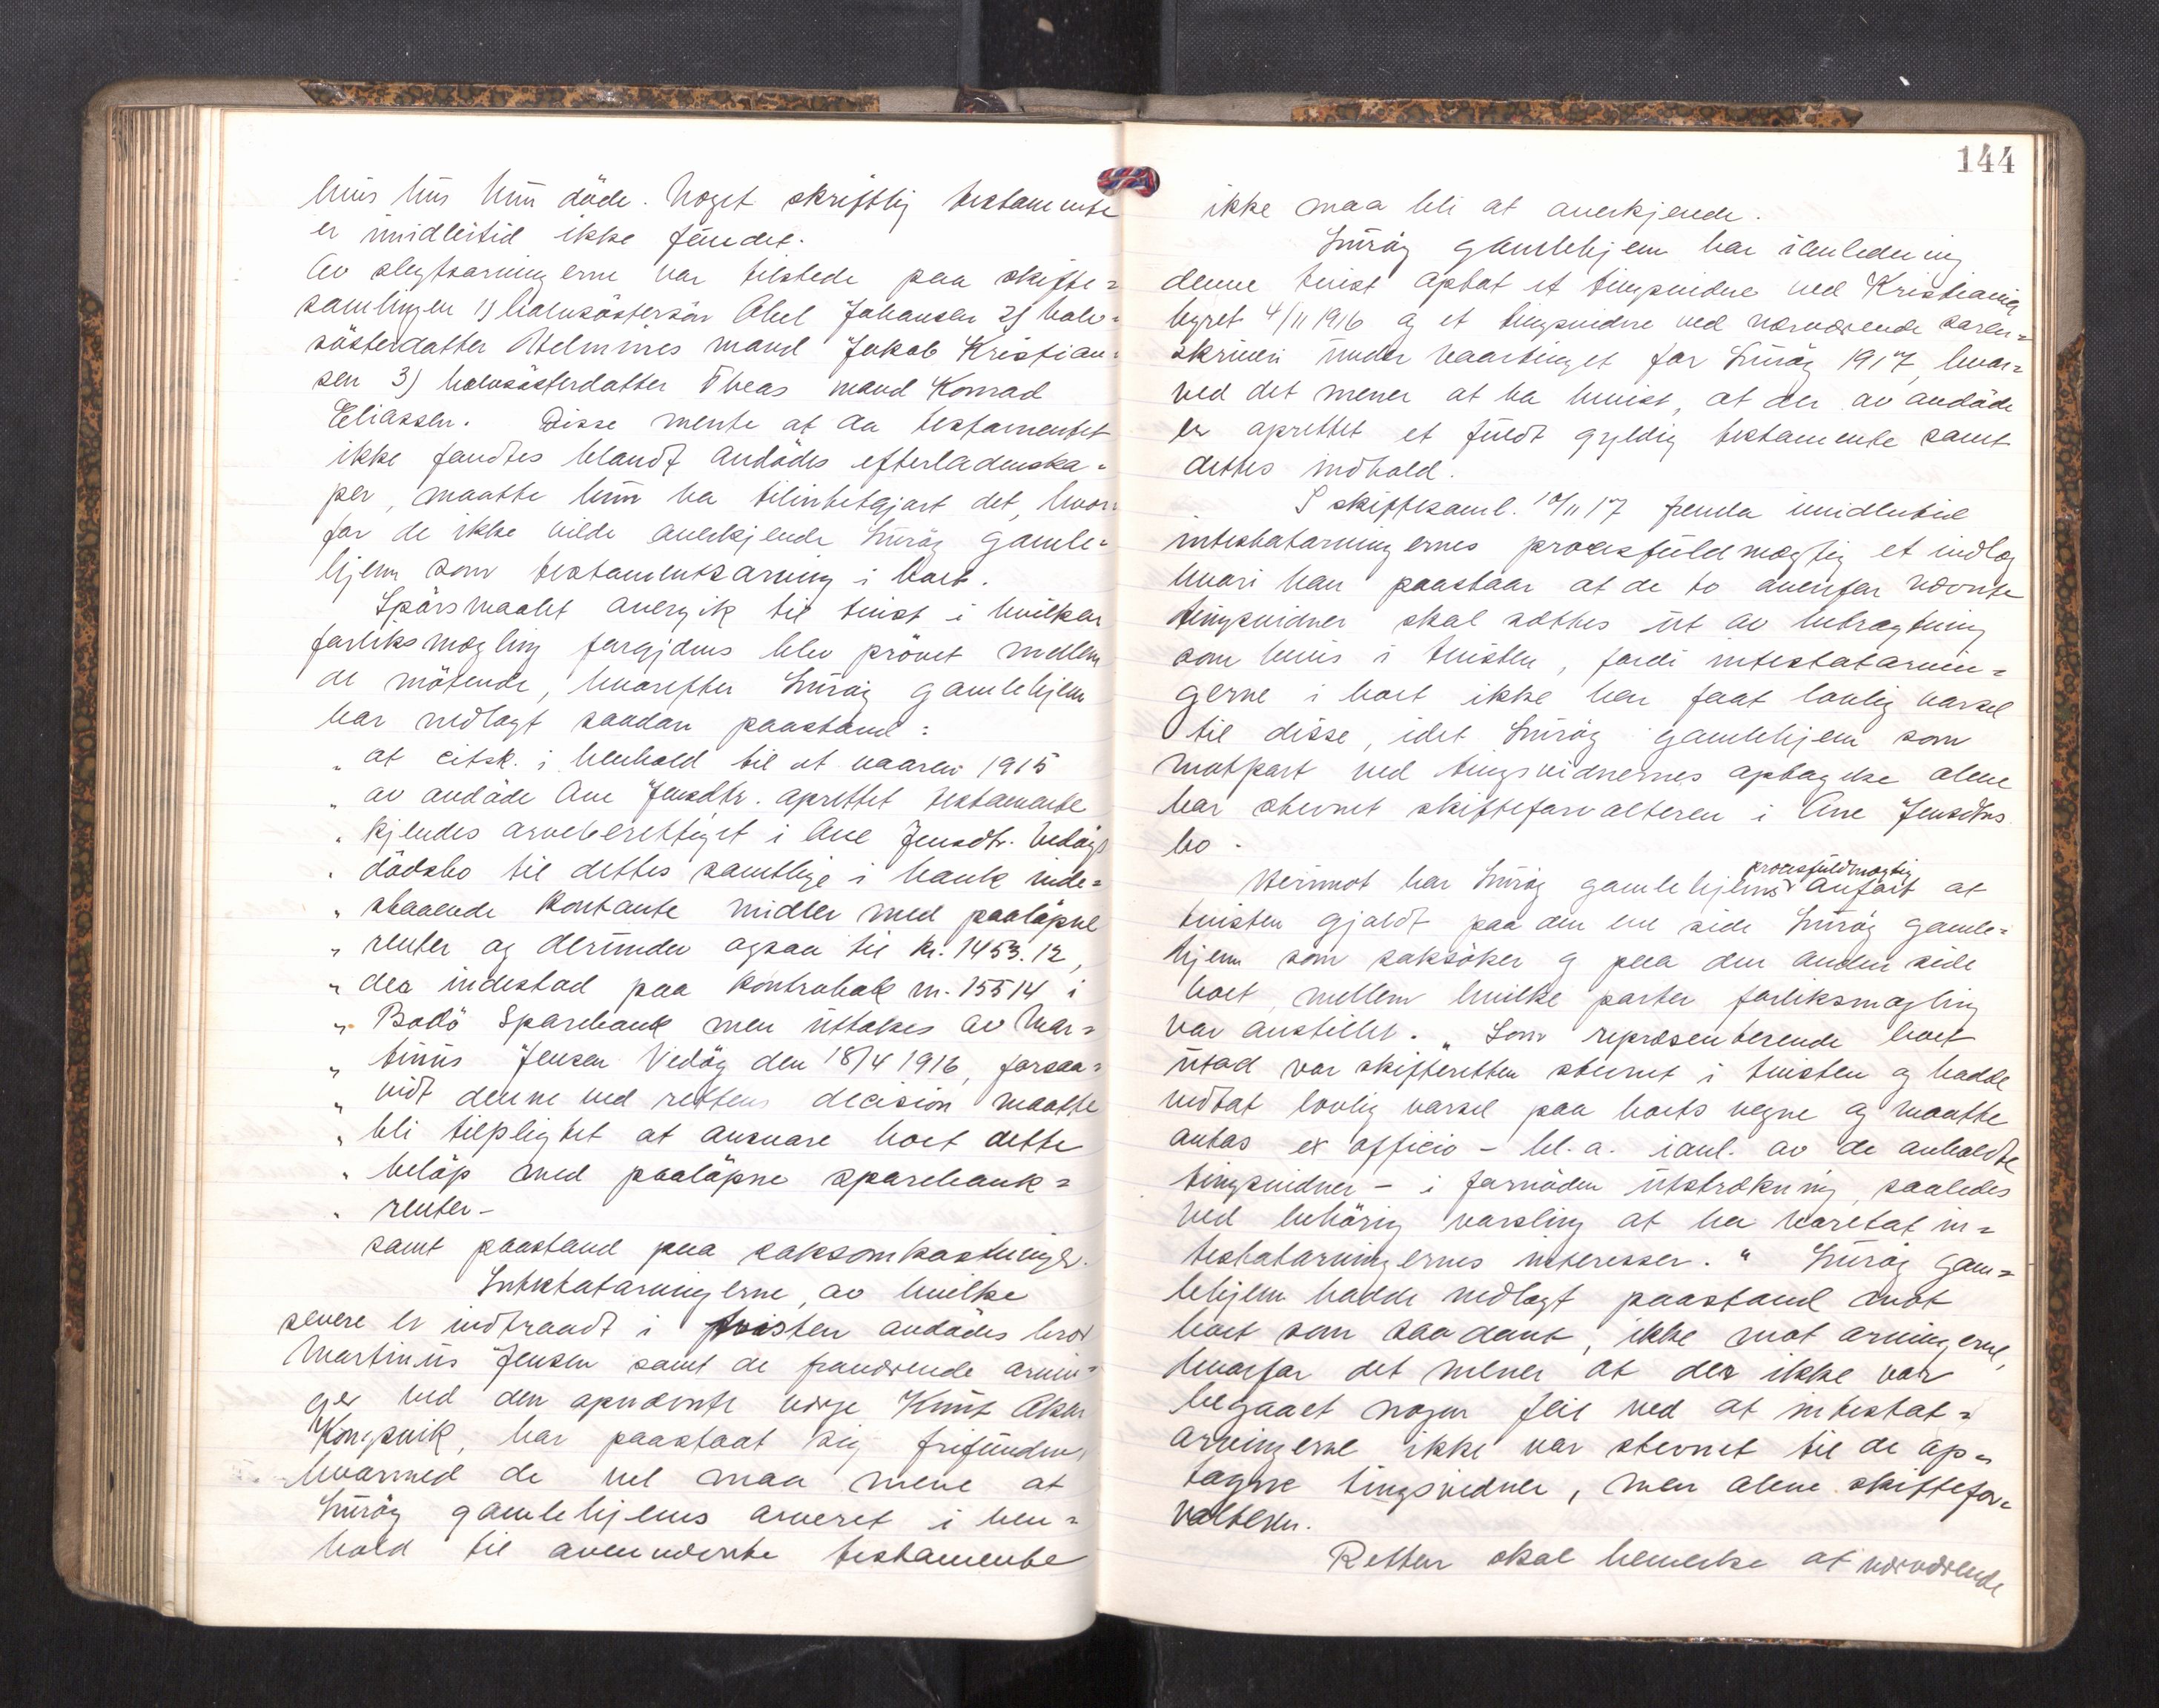 hvis hus hun döde. Noget skriftlig testamente
er imidlertid ikke fundet.
Av slegtsarvingerne var tilstede paa skifte=
samlingen 1) halvsöstersön Abel Johansen 2) halv=
sösterdatter Helmines mand Jakob Kristian=
sen 3) halvsösterdatter Theas mand Konrad
Eliassen. Disse mente at da testamentet
ikke fandtes blandt avdödes efterladenska=
per, maatte hun ha tilintetgjort det, hvor=
for de ikke vilde anerkjende Luröy gamle=
hjem som testamentsarving i boet.
Spörsmaalet overgik til tvist i hvilken
forliksmegling forgjæves blev prövet mellem
de mötende, hvorefter Luröy gamlehjem
har nedlagt saadan paastand:
" at citsk. i henhold til et vaaren 1915
" av avdöde Ane Jensdtr. oprettet testamente
" kjendes arveberettiget i Ane Jensdtr. Vedöys
" dödsbo til dettes samtlige i bank inde=
" staaende kontante midler med paalöpne
" renter og derunder ogsaa til kr. 1453.12,
" der indestod paa kontrabok nr. 15514 i
" Bodö Sparebank men uttokes av Mar=
" tinus Jensen Vedöy den 18/4 1916, forsaa=
" vidt denne ved rettens decision maatte
" bli tilpligtet at ansvare boet dette
" belöp med paalöpne sparebank=
" renter –
samt paastand paa saksomkostninger.
Intestatarvingerne, av hvilke
senere er indtraadt i tvisten avdödes bror
Martinus Jensen samt de fraværende arvin=
ger ved den opnævnte verge Knut Aker
Konsvik, har paastaat sig frifundne,
hvormed de vel maa mene at
Luröy gamlehjems arveret i hen=
hold til ovennævnte testamente
144
ikke maa bli at anerkjende.
Luröy gamlehjem har i anledning
denne tvist optat et tingsvidne ved Kristiania
byret 4/11 1916 og et tingsvidne ved nærværende soren=
skriveri under vaartinget for Luröy 1917, hvor=
ved det mener at ha bevist, at der av avdöde
er oprettet et fuldt gyldig testamente samt
dettes indhold.
I skiftesaml. 10/11 17 fremla imidlertid
intestatarvingernes procesfuldmægtig et indlæg
hvori han paastaar at de to ovenfor nævnte
tingsvidner skal sættes ut av betragtning
som bevis i tvisten, fordi intestatarvin=
gerne i boet ikke har faat lovlig varsel
til disse, idet Luröy gamlehjem som
motpart ved tingsvidnernes optagelse alene
har stevnet skifteforvalteren i Ane Jensdtrs
bo.
Herimot har Luröy gamlehjems procesfuldmægtig anfört at
tvisten gjaldt paa den ene side Luröy gamle=
hjem som saksöker og paa den anden side
boet, mellem hvilke parter forliksmægling
var anstillet. "Som repræsenterende boet
utad var skifteretten stevnet i tvisten og hadde
vedtat lovlig varsel paa boets vegne og maatte
antas ex officio – bl.a. i anl. av de avholdte
tingsvidner – i fornöden utstrækning, saaledes
ved behörig varsling at ha varetat in=
testatarvingernes interesser." Luröy gam=
lehjem hadde nedlagt paastand mot
boet som saadant, ikke mot arvingerne,
hvorfor det mener at der ikke var
begaaet nogen feil ved at intestat=
arvingerne ikke var stevnet til de op=
tagne tingsvidner, men alene skiftefor=
valteren.
Retten skal bemerke at nærværende